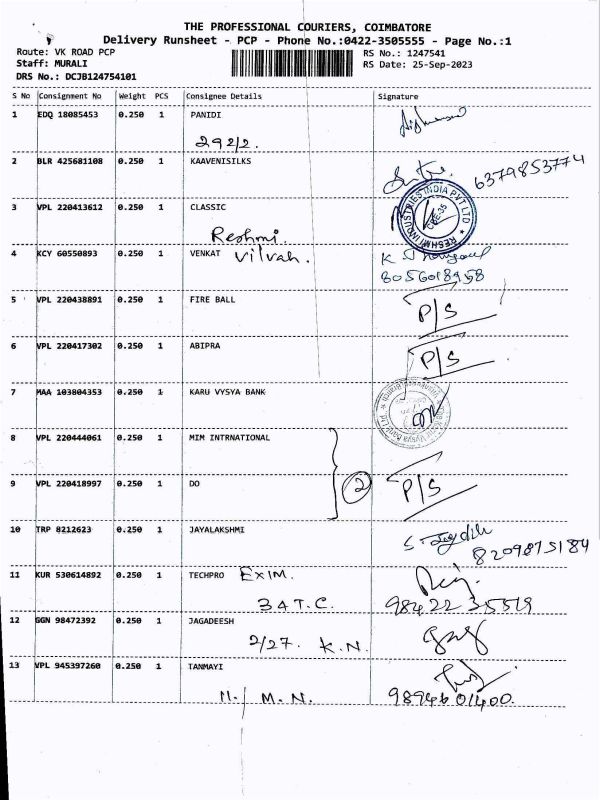 THE PROFESSIONAL COURIERS, COIMBATORE
Delivery Runsheet - PCP - Phone No.:0422-3505555 - Page No.:1
Route: VK ROAD PCP RS No.: 1247541
Staff: MURALI RS Date: 25-Sep-2023
DRS No.: DCJB124754101
S No Consignment No Weight PCS Consignee Details Signature
1 EDQ 18085453 0.250 1 PANIDI
292/2.
2 BLR 425681108 0.250 1 KAAVENISILKS
6379853774
3 VPL 220413612 0.250 1 CLASSIC
RESHMI INDUSTRIES INDIA PVT LTD
CBE-35
Reshmi.
4 KCY 60550893 0.250 1 VENKAT Vilvah.
8056018958
5 VPL 220438891 0.250 1 FIRE BALL P/S
6 VPL 220417302 0.250 1 ABIPRA P/S
7 MAA 103804353 0.250 1 KARU VYSYA BANK
8 VPL 220444061 0.250 1 MIM INTRNATIONAL
9 VPL 220418997 0.250 1 DO 2 P/S
10 TRP 8212623 0.250 1 JAYALAKSHMI
8209875184
11 KUR 530614892 0.250 1 TECHPRO EXIM.
34 T.C. 98422 35519
12 GGN 98472392 0.250 1 JAGADEESH
2/27. K.N.
13 VPL 945397260 0.250 1 TANMAYI
11. M.N. 9894601400.